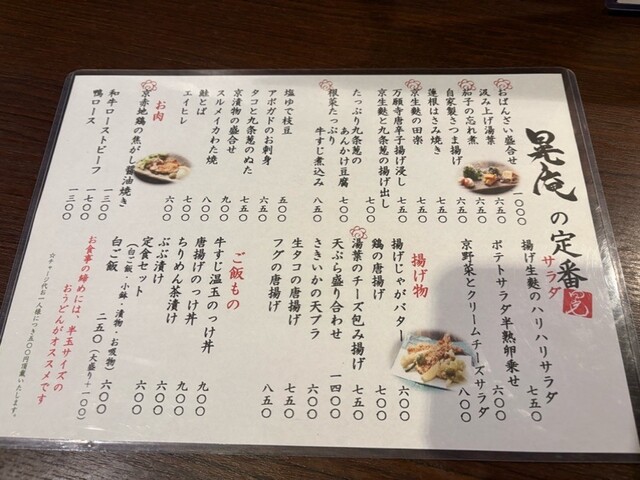 晃庵の定番
おばんざい盛合せ 一〇〇〇
汲み上げ湯葉 六五〇
茄子の忘れ煮 六五〇
自家製さつま揚げ 七五〇
蓮根はさみ焼き 七五〇
京生麩の田楽 七五〇
万願寺唐辛子揚げ浸し 七五〇
京生麩と九条葱の揚げ出し
たっぷり九条葱の
あんかけ豆腐 七〇〇
根菜たっぷり
牛すじ煮込み 八五〇
塩ゆで枝豆 五〇〇
アボガドのお刺身 七五〇
タコと九条葱のぬた 六五〇
京漬物の盛合せ 七五〇
スルメイカわた焼 九〇〇
鮭とば 七〇〇
エイヒレ 八〇〇
お肉
京赤地鶏の焦がし醤油焼き
和牛ローストビーフ 一三〇〇
鴨ロース 一七〇〇
一三〇〇
サラダ
揚げ生麩のハリハリサラダ 七五〇
ポテトサラダ半熟卵乗せ 六〇〇
京野菜とクリームチーズサラダ 八〇〇
揚げ物
揚げじゃがバター 六〇〇
鶏の唐揚げ 七〇〇
湯葉のチーズ包み揚げ 七五〇
天ぷら盛り合わせ 一四〇〇
さきいかの天プラ 六〇〇
生タコの唐揚げ 七五〇
フグの唐揚げ 八五〇
ご飯もの
牛すじ温玉のっけ丼 九〇〇
唐揚げのっけ丼 九〇〇
ちりめん茶漬け 六〇〇
ぶぶ漬け 六〇〇
定食セット 六〇〇
(白ご飯,小鉢,漬物・お吸物)
白ご飯 二五〇 (大盛り+一〇〇)
お食事の締めには、半玉サイズの
おうどんがオススメです
☆チャージ代お一人様につき五〇〇円頂戴いたします。